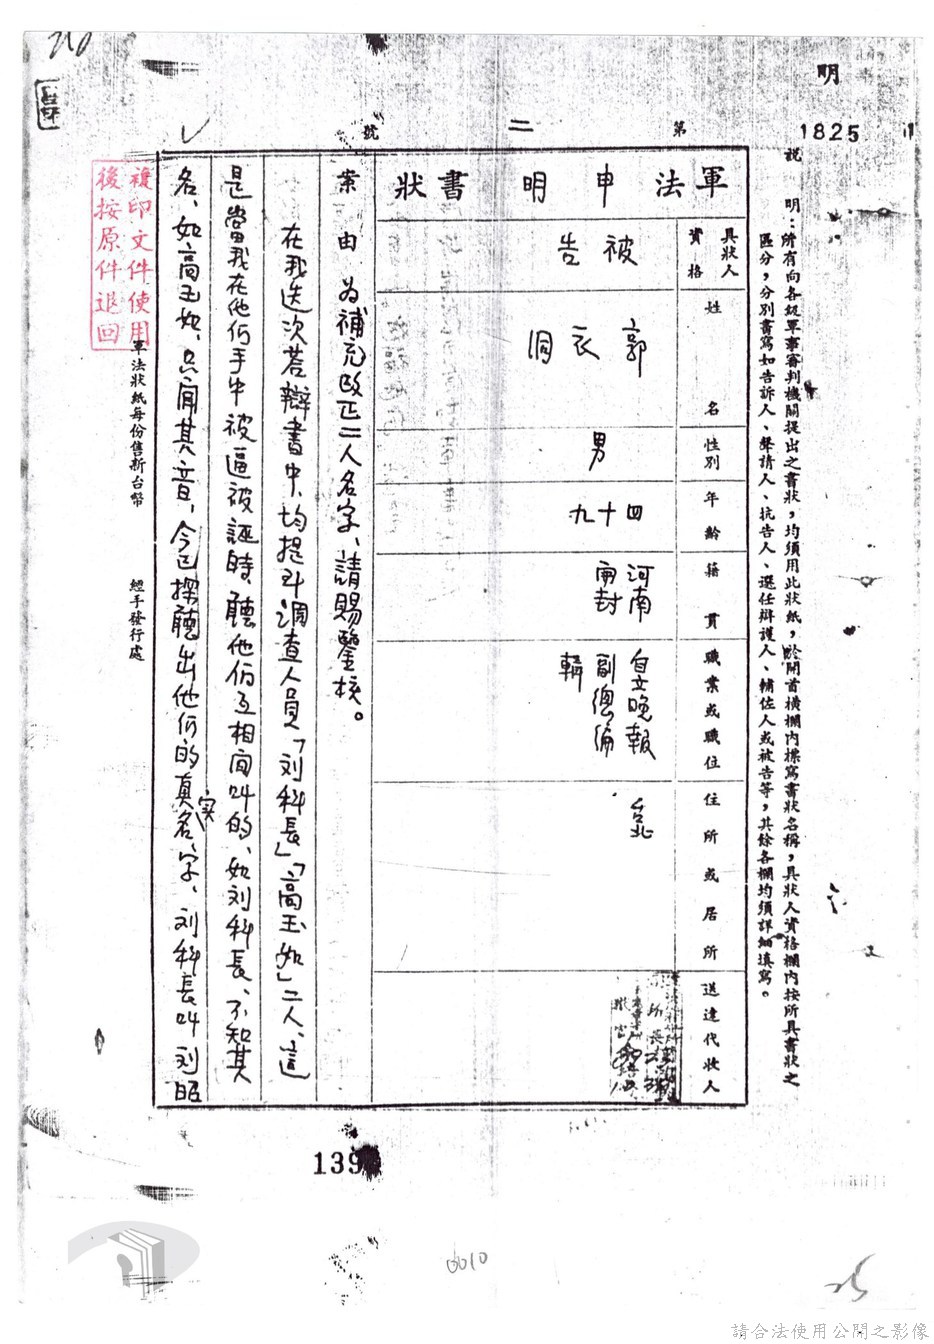 明
1825
第 二 號
說明：所有向各級軍事審判機關提出之書狀，均須用此狀紙，於開首橫欄內標寫書狀名稱，具狀人資格欄內按所具書狀之
區分，分別書寫如告訴人、聲請人、抗告人、選任辯護人、輔佐人或被告等，其餘各欄均須詳細填寫。
軍法申明書狀
具狀人資格
被告
姓名
郭衣洞
性別
男
年齡
四十九
籍貫
河南
開封
職業或職住
自立晚報
副總編
輯
住所或居所
台北
送達代收人
案由 為補充改正二人名字、請賜鑒核。
在我迭次答辯書中、均提到調查人員「刘科長」「高玉如」二人、這
是當我在他們手中被逼被誣時、聽他們互相间叫的、如刘科長、不知其
名、如高玉如、只闻其音、今已探聽出他们的真实名字、刘科長叫刘昭
軍法狀紙每份售新台幣
經手發行處
複印文件使用
後按原件退回
139
0010
請合法使用公開之影像